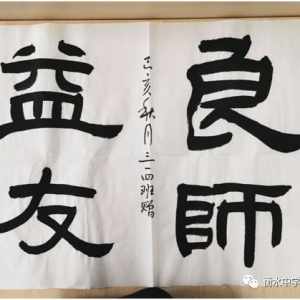 良師
益友
己亥秋月三一四班贈
衡水中学